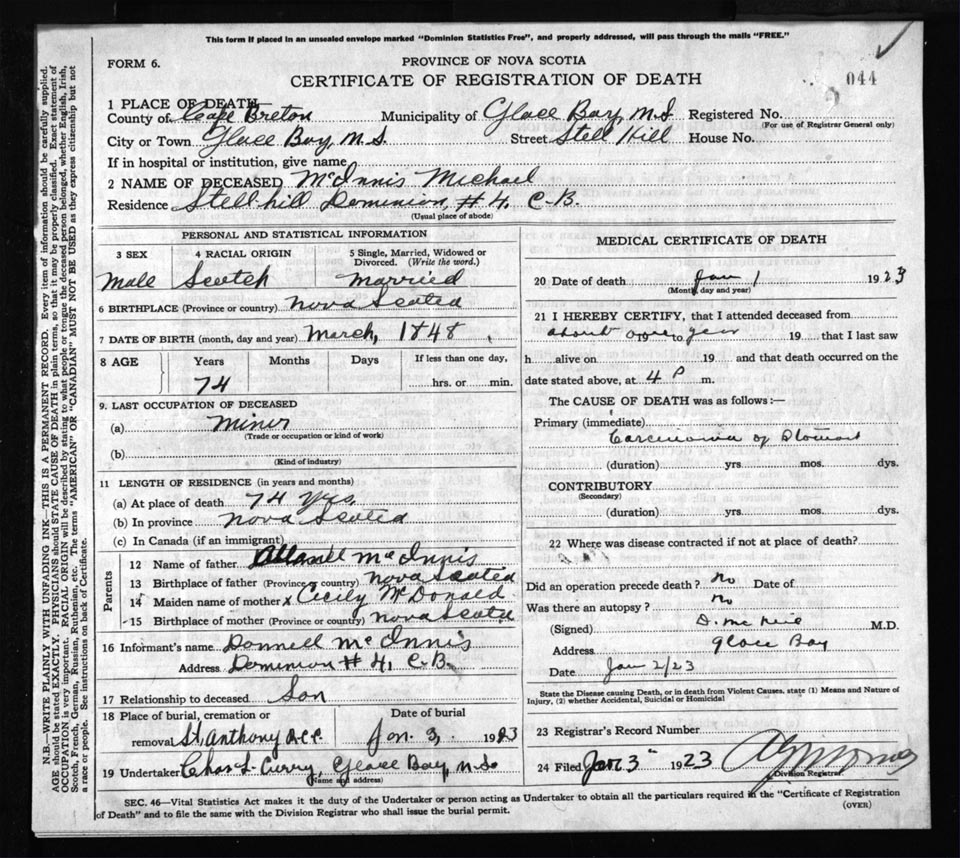 This form if placed in an unsealed envelope marked "Dominion Statistics Free", and properly addressed, will pass through the mails "FREE."
FORM 6.
PROVINCE OF NOVA SCOTIA
CERTIFICATE OF REGISTRATION OF DEATH
044
1 PLACE OF DEATH
County of Cape Breton Municipality of Glace Bay, N.S. Registered No.
(For use of Registrar General only)
City or Town Glace Bay, N.S. Street Stell Hill House No.
If in hospital or institution, give name
2 NAME OF DECEASED McInnis Michael
Residence Stell hill Dominion, # 4, C-B.
(Usual place of abode)
PERSONAL AND STATISTICAL INFORMATION
3 SEX 4 RACIAL ORIGIN 5 Single, Married, Widowed or Divorced. (Write the word.)
Male Scotch Married
6 BIRTHPLACE (Province or country) Nova Scotia
7 DATE OF BIRTH (month, day and year) March, 1848
8 AGE Years Months Days If less than one day,
74 hrs. or min.
9. LAST OCCUPATION OF DECEASED
(a) Miner
(Trade or occupation or kind of work)
(b)
(Kind of industry)
11 LENGTH OF RESIDENCE (in years and months)
(a) At place of death 74 yrs,
(b) In province Nova Scotia
(c) In Canada (if an immigrant)
Parents
12 Name of father McInnis
13 Birthplace of father (Province or country) Nova Scotia
14 Maiden name of mother x Cecily McDonald
15 Birthplace of mother (Province or country) Nova Scotia
16 Informant's name Donnell McInnis
Address Dominion # 4, C-B.
17 Relationship to deceased Son
18 Place of burial, cremation or Date of burial
removal St Anthony Jan. 3, 1923
19 Undertaker Chas L Curry, Glace Bay, N.S.
(Name and address)
MEDICAL CERTIFICATE OF DEATH
20 Date of death Jan 1 1923
(Month, day and year)
21 I HEREBY CERTIFY, that I attended deceased from
about one year 19 to 19 that I last saw
h alive on 19 and that death occurred on the
date stated above, at 4 P m.
The CAUSE OF DEATH was as follows:—
Primary (immediate)
Carcinoma of Stomach
(duration) yrs. mos. dys.
CONTRIBUTORY
(Secondary)
(duration) yrs. mos. dys.
22 Where was disease contracted if not at place of death?
Did an operation precede death? no Date of
Was there an autopsy? no
(Signed) D. McNeil M.D.
Address Glace Bay
Date Jan 2/23
State the Disease causing Death, or in death from Violent Causes, state (1) Means and Nature of
Injury, (2) whether Accidental, Suicidal or Homicidal
23 Registrar's Record Number
24 Filed Jan 3 1923
Division Registrar
SEC. 46—Vital Statistics Act makes it the duty of the Undertaker or person acting as Undertaker to obtain all the particulars required in the "Certificate of Registration
of Death" and to file the same with the Division Registrar who shall issue the burial permit.
(OVER)
N.B.—WRITE PLAINLY WITH UNFADING INK—THIS IS A PERMANENT RECORD. Every item of information should be carefully supplied.
AGE should be stated EXACTLY. PHYSICIANS should STATE CAUSE OF DEATH in plain terms, so that it may be properly classified. Exact statement of
OCCUPATION is very important. RACIAL ORIGIN will be described by stating to what people or tongue the deceased person belonged, whether English, Irish,
Scotch, French, German, Russian, Ruthenian, etc. The terms "AMERICAN" OR "CANADIAN" MUST NOT BE USED as they express citizenship but not
a race or people. See instructions on back of Certificate.